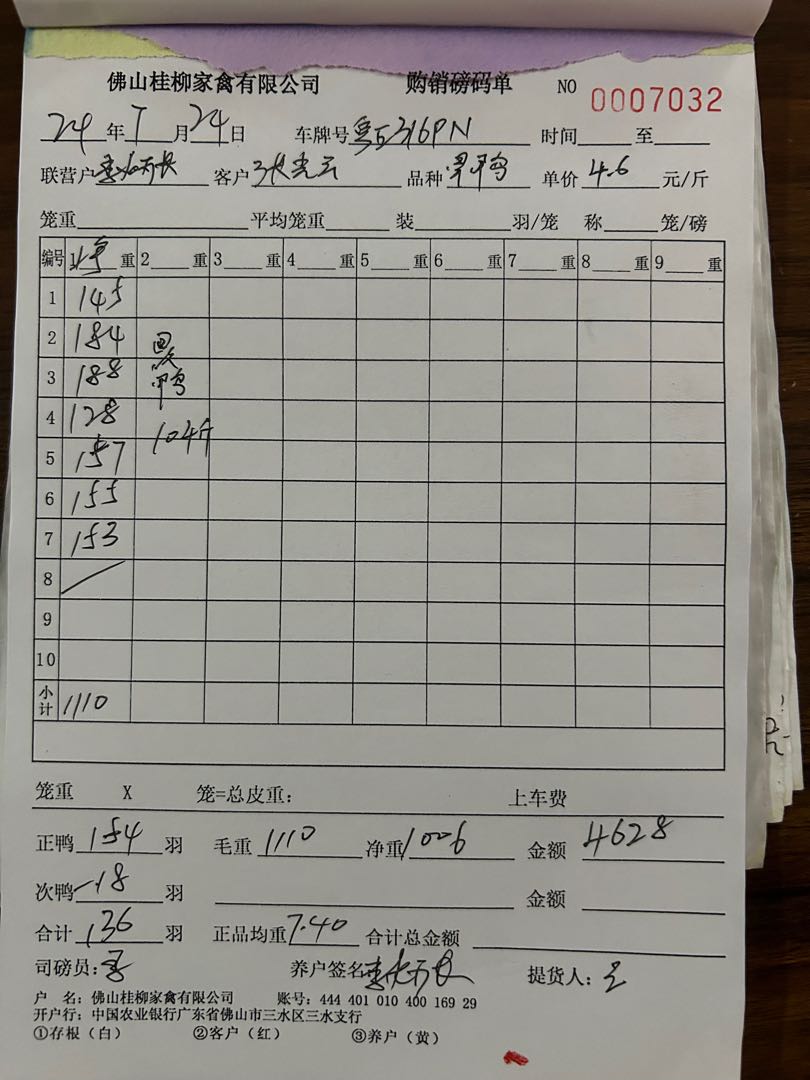 佛山桂柳家禽有限公司 购销磅码单 NO 0007032
24年7月24日 车牌号 时间 至
联营户 客户 张光云 品种 单价4.6元/斤
笼重 平均笼重 装 羽/笼 称 笼/磅
编号 1 重 2 重 3 重 4 重 5 重 6 重 7 重 8 重 9 重
1 145
2 184
3 188 鸭
4 128 104斤
5 157
6 155
7 153
8
9
10
小计 1110
笼重 X 笼=总皮重: 上车费
正鸭154羽 毛重1110 净重1006 金额4628
次鸭-18羽 金额
合计136羽 正品均重7.40 合计总金额
司磅员: 养户签名 提货人:
户 名: 佛山桂柳家禽有限公司 账号: 444 401 010 400 169 29
开户行: 中国农业银行广东省佛山市三水区三水支行
①存根(白) ②客户(红) ③养户(黄)